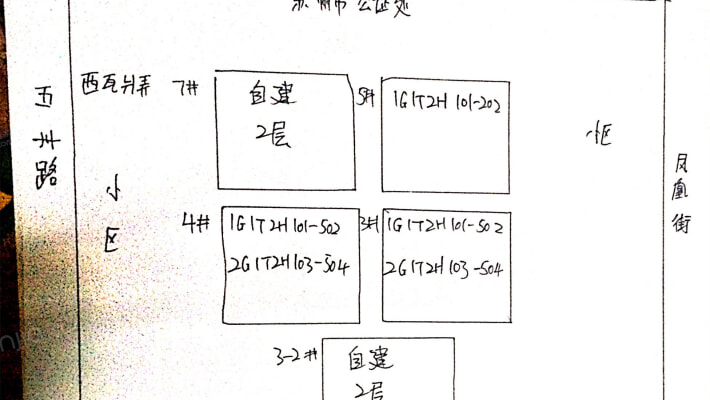 苏州市公证处
五卅路
西瓦爿弄
7#
自建
2层
5#
1G1T2H 101-202
小区
小区
凤凰街
4#
1G1T2H 101-502
2G1T2H 103-504
3#
1G1T2H 101-502
2G1T2H 103-504
3-2#
自建
2层